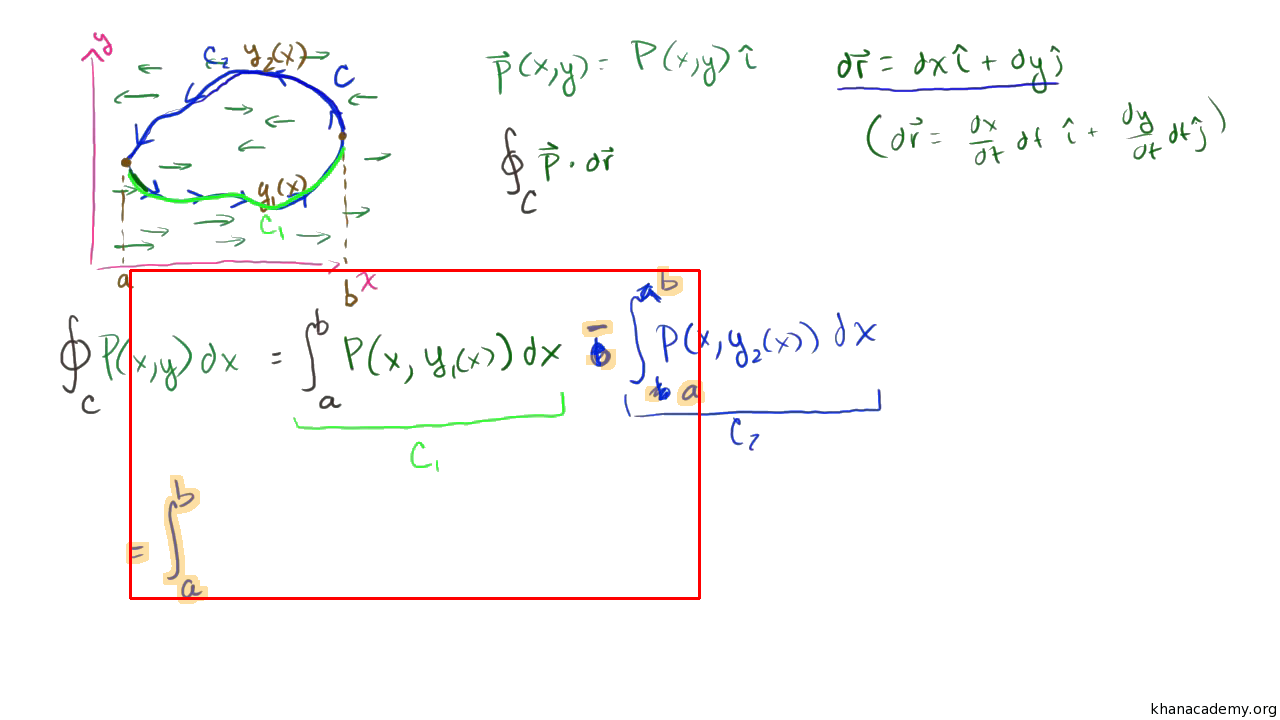 y
C₂ y₂(x)
C
y₁(x)
C₁
a b x
P⃗(x,y) = P(x,y) î
dr⃗ = dx î + dy ĵ
(dr⃗ = dx/dt dt î + dy/dt dt ĵ)
∮_C P⃗ · dr⃗
∮_C P(x,y) dx = ∫_a^b P(x, y₁(x)) dx − ∫_a^b P(x, y₂(x)) dx
C₁ C₂
= ∫_a^b
khanacademy.org